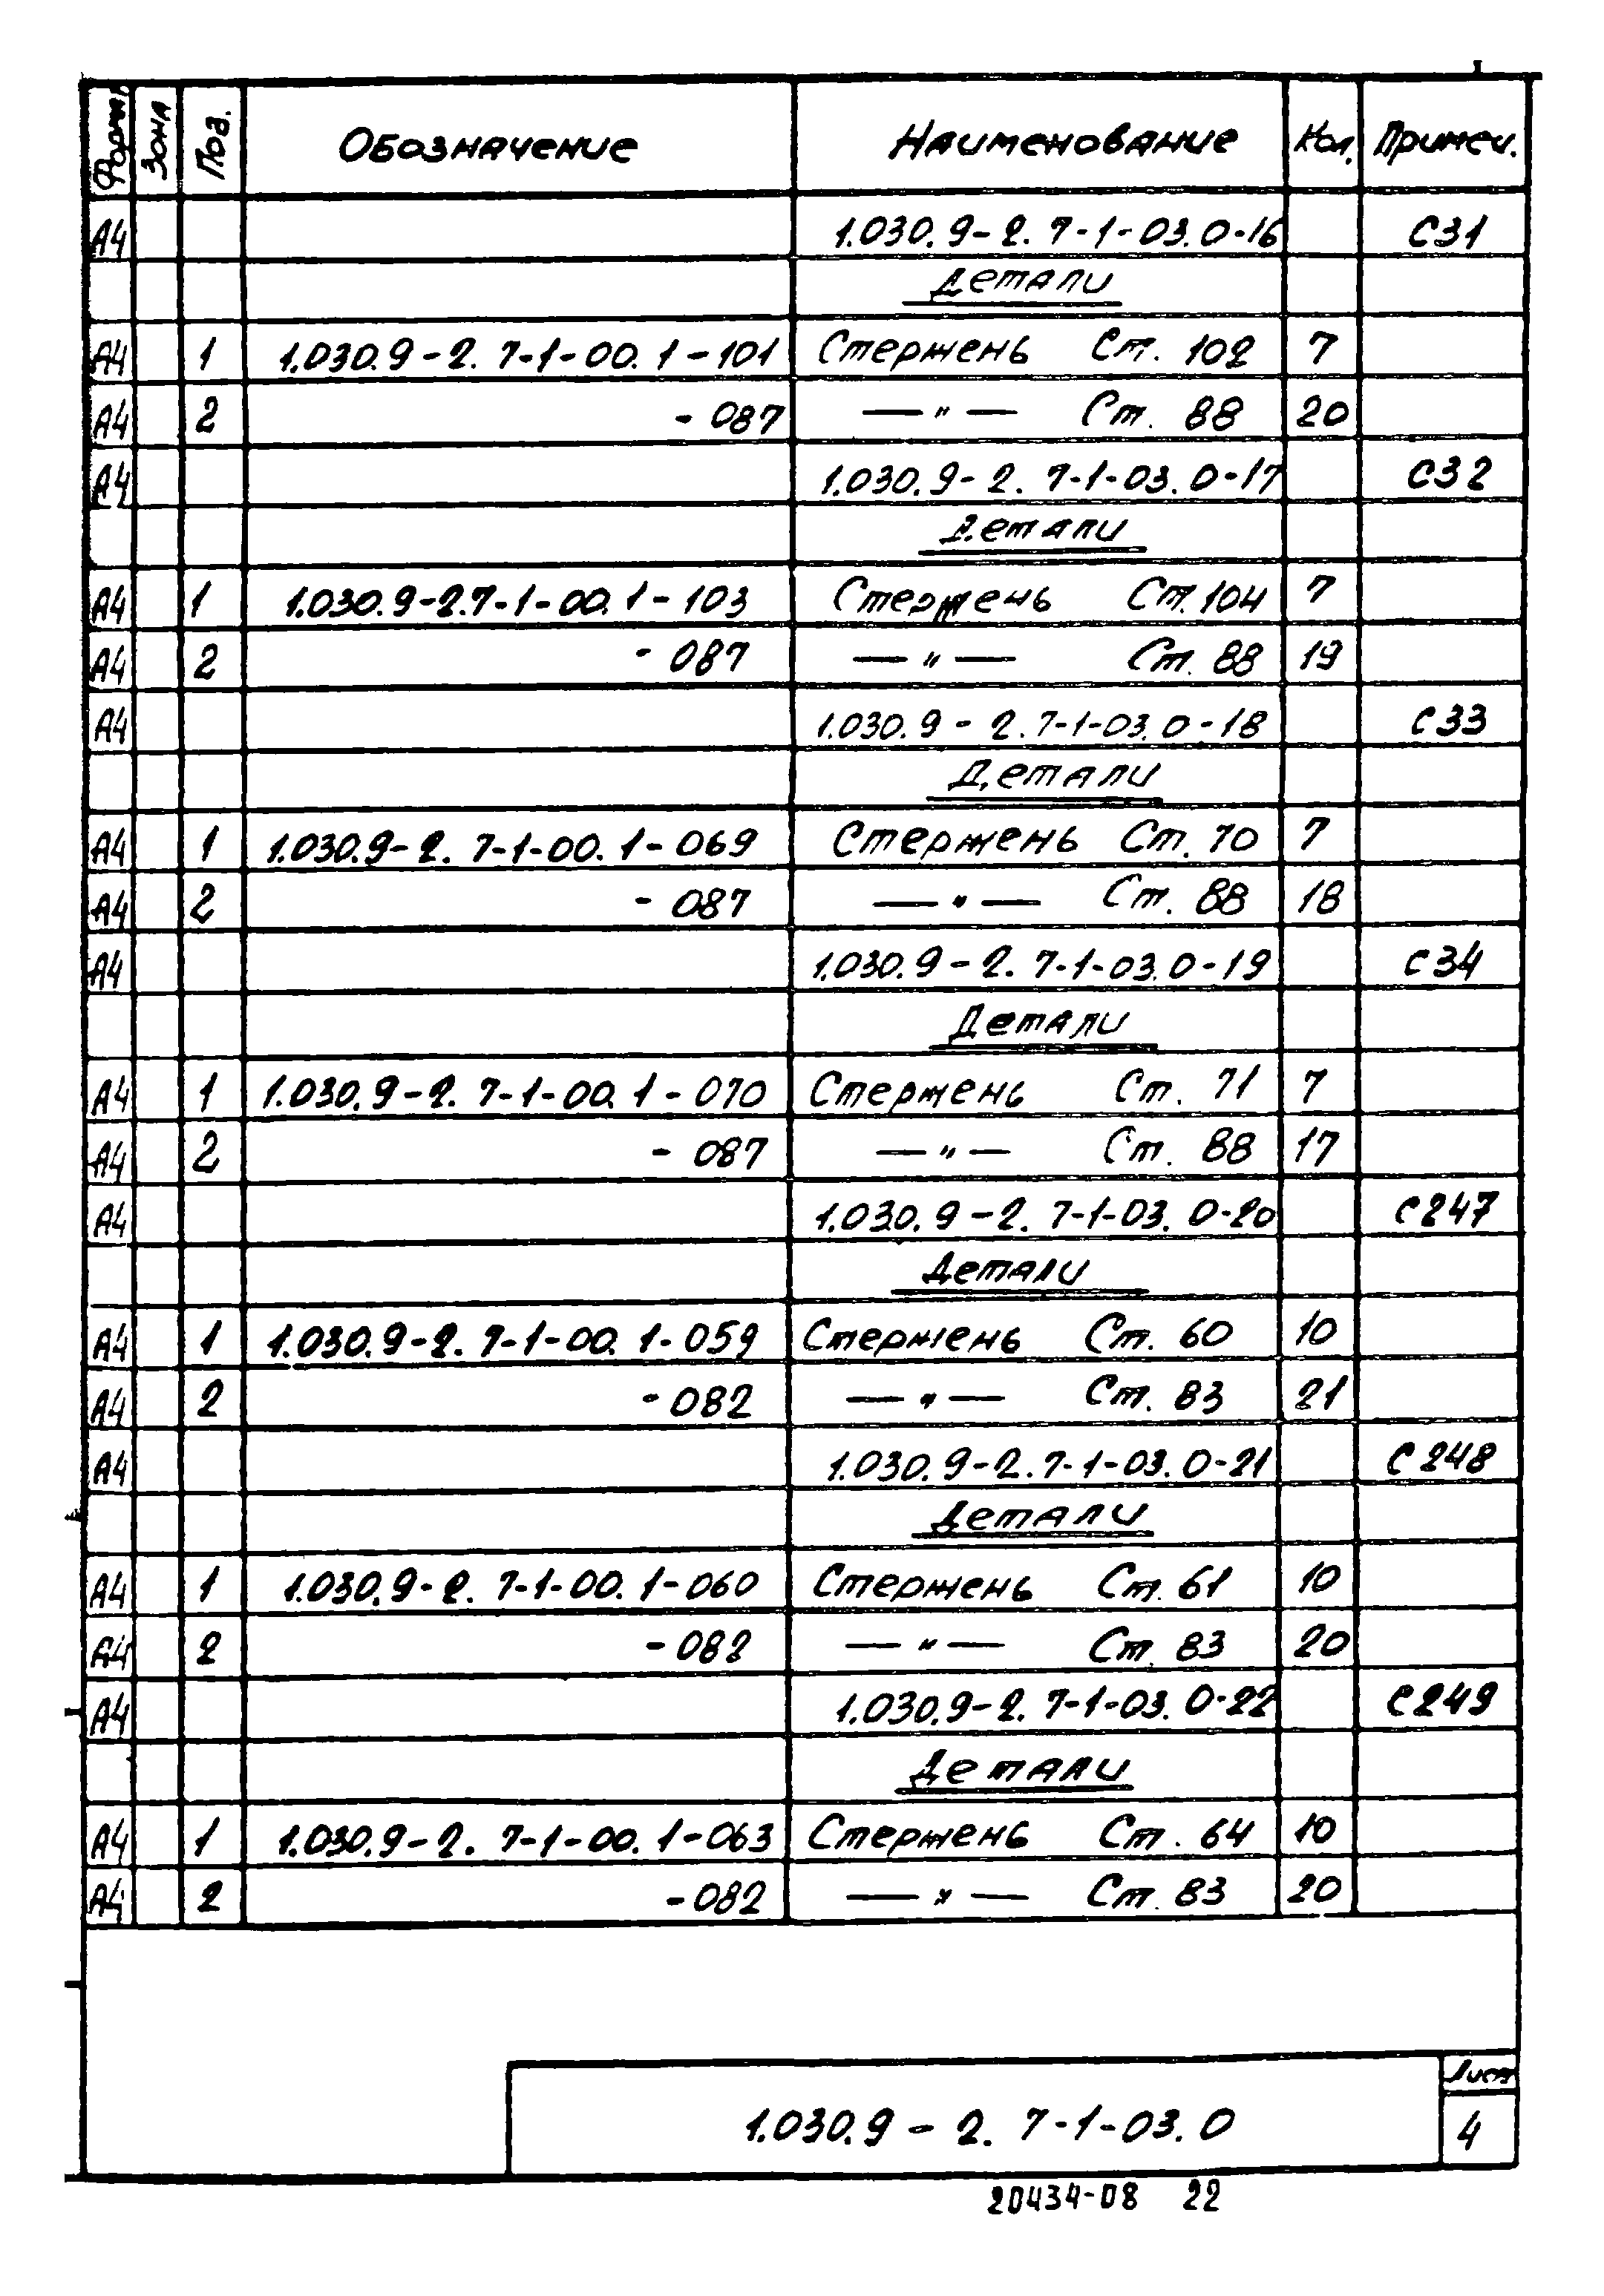 Формат Зона Поз. Обозначение Наименование Кол. Примеч.
А4 1.030.9-2.7-1-03.0-16 С31
Детали
А4 1 1.030.9-2.7-1-00.1-101 Стержень Ст. 102 7
А4 2 -087 —„— Ст. 88 20
А4 1.030.9-2.7-1-03.0-17 С32
Детали
А4 1 1.030.9-2.7-1-00.1-103 Стержень Ст. 104 7
А4 2 -087 —„— Ст. 88 19
А4 1.030.9-2.7-1-03.0-18 С33
Детали
А4 1 1.030.9-2.7-1-00.1-069 Стержень Ст. 70 7
А4 2 -087 —„— Ст. 88 18
А4 1.030.9-2.7-1-03.0-19 С34
Детали
А4 1 1.030.9-2.7-1-00.1-070 Стержень Ст. 71 7
А4 2 -087 —„— Ст. 88 17
А4 1.030.9-2.7-1-03.0-20 С247
Детали
А4 1 1.030.9-2.7-1-00.1-059 Стержень Ст. 60 10
А4 2 -082 —„— Ст. 83 21
А4 1.030.9-2.7-1-03.0-21 С248
Детали
А4 1 1.030.9-2.7-1-00.1-060 Стержень Ст. 61 10
А4 2 -082 —„— Ст. 83 20
А4 1.030.9-2.7-1-03.0-22 С249
Детали
А4 1 1.030.9-2.7-1-00.1-063 Стержень Ст. 64 10
А4 2 -082 —„— Ст. 83 20
Лист
1.030.9-2.7-1-03.0 4
20434-08 22